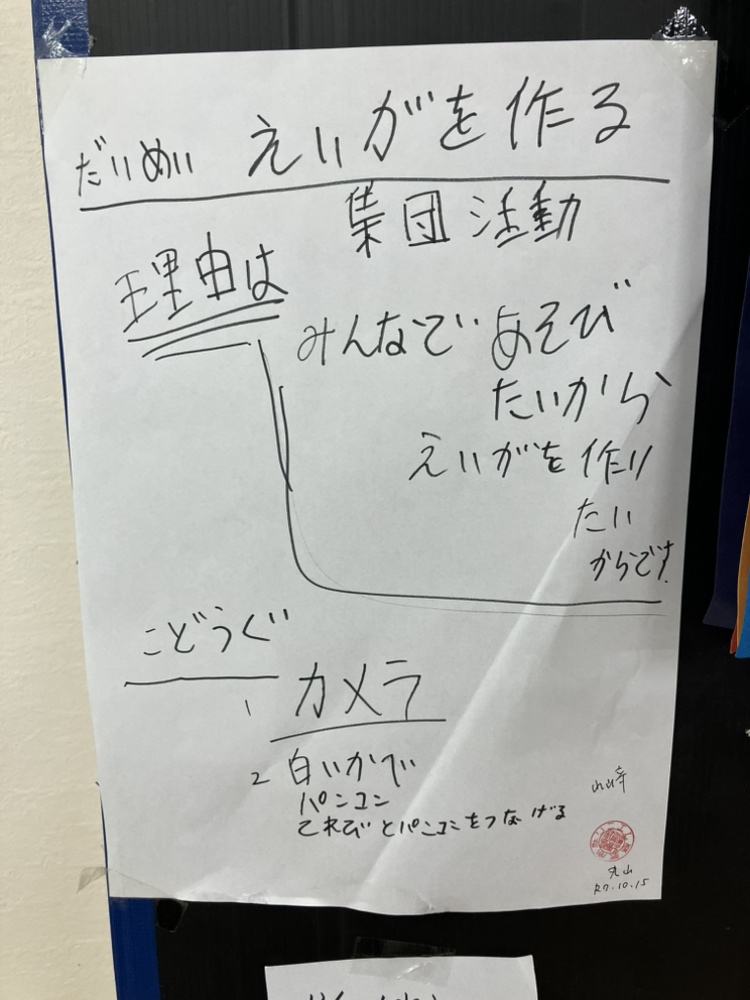 だいめい えいがを作る
集団活動
理由は
みんなで あそび
たいから
えいがを作り
たい
からです
こどうぐ
1 カメラ
2 白いかべ
パソコン
てれびとパソコンをつなげる
丸山
R7.10.15